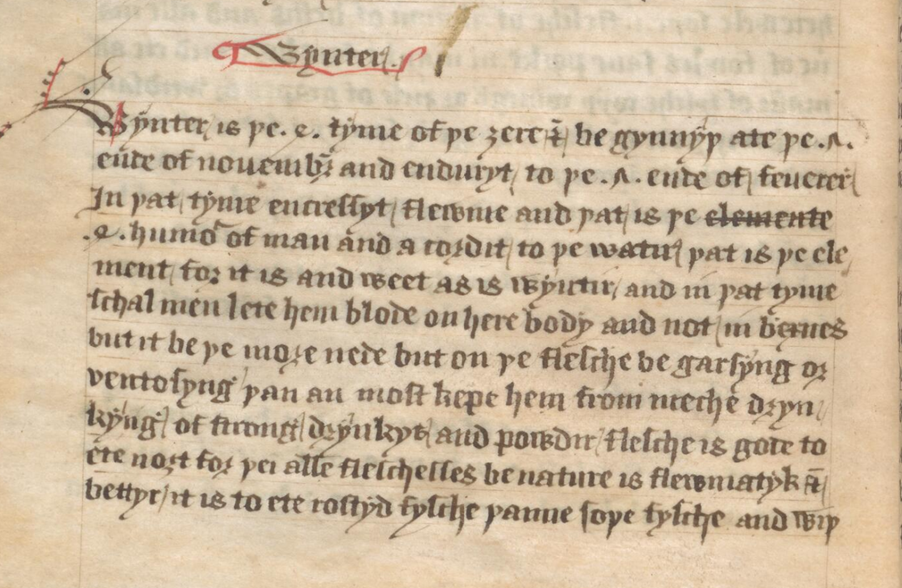 Wynter.
Wynter is þe .2. tyme of þe ȝere & be gynnyþ ate þe .1.
ende of nouembr̄ and enduryt to þe .1. ende of feuerer
In þat tyme encressyt flewme and þat is þe elemente
.2. humor of man and a cordit to þe watir þat is þe ele
ment for it is and weet as is wyntir and in þat tyme
schal men lete hem blode on here body and not in veynes
but it be þe more nede but on þe flesche be garsyng or
ventosyng þan an most kepe hem from meche dryn
kyng of strong drynkyt and powdir flesche is gode to
ete nost for þei alle fleschesses be nature is flewmatyk &
bettyr it is to ete rostyd fysche þanne sope fysche and wiþ